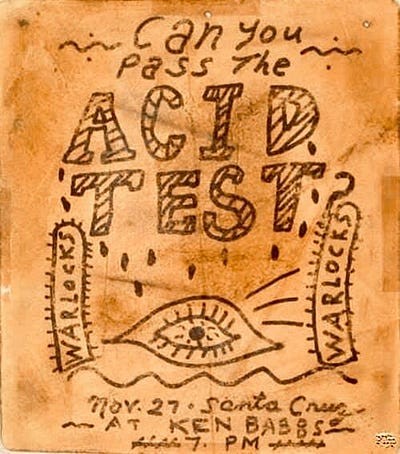 Can you
Pass The
ACID
TEST
WARLOCKS
WARLOCKS
Nov. 27 · Santa Cruz
AT KEN BABBS
7. PM